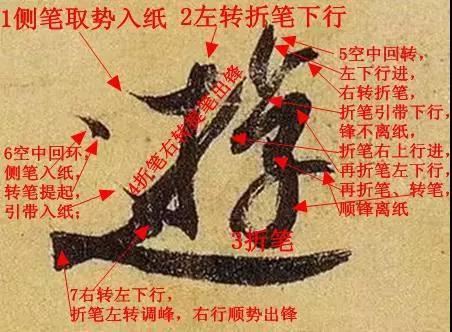 1侧笔取势入纸 2左转折笔下行
5空中回转，
左下行进，
右转折笔，
折笔引带下行，
锋不离纸，
折笔右上行进，
再折笔左下行，
再折笔、转笔，
顺锋离纸
4折笔右转提笔出锋
遊
6空中回环，
侧笔入纸，
转笔提起，
引带入纸；
3折笔
7右转左下行，
折笔左转调峰，右行顺势出锋